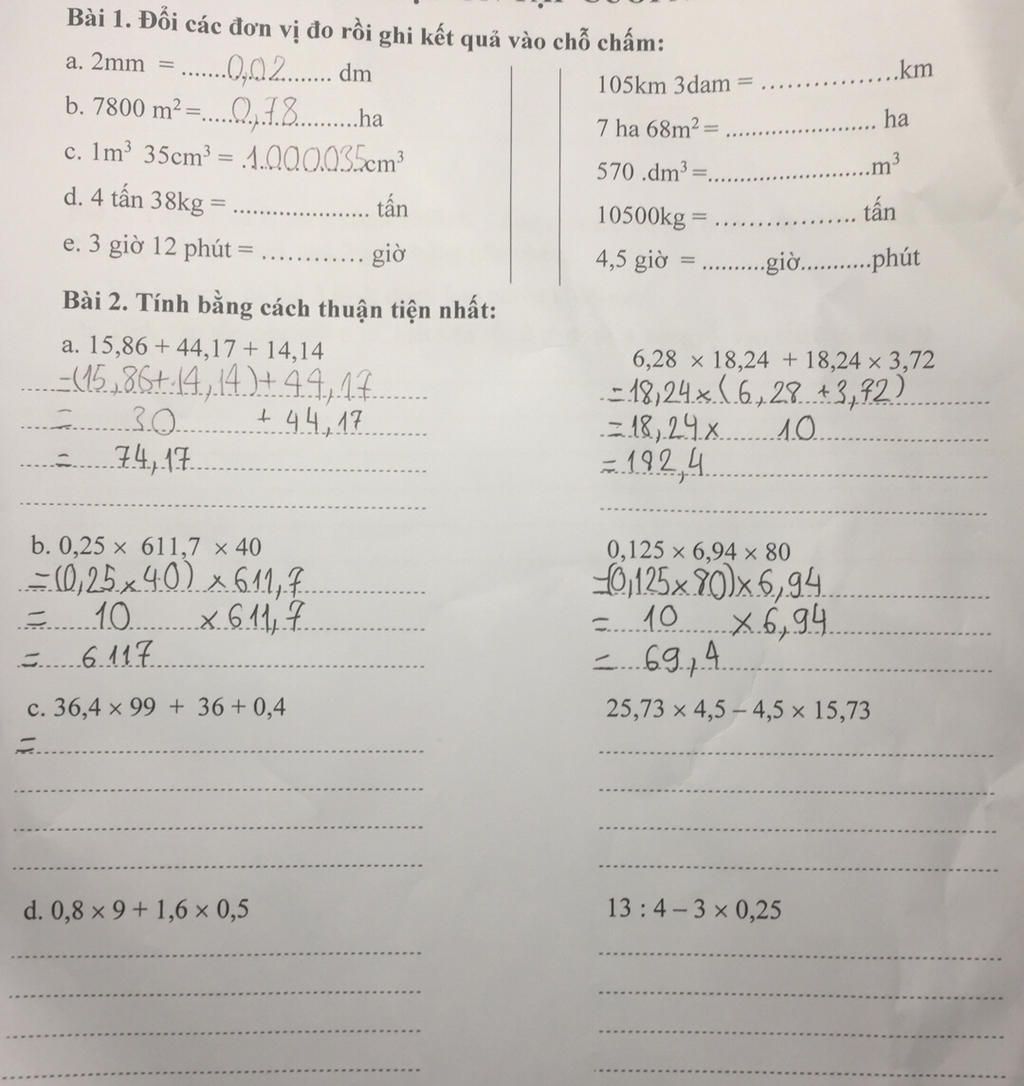 Bài 1. Đổi các đơn vị đo rồi ghi kết quả vào chỗ chấm:
a. 2mm = .......0,02....... dm
b. 7800 m² =.....0,78..........ha
c. 1m³ 35cm³ = .1.000.035cm³
d. 4 tấn 38kg = ..................... tấn
e. 3 giờ 12 phút = ............ giờ
105km 3dam = ................km
7 ha 68m² = ....................... ha
570 .dm³ =.........................m³
10500kg = ................. tấn
4,5 giờ = ..........giờ...........phút
Bài 2. Tính bằng cách thuận tiện nhất:
a. 15,86 + 44,17 + 14,14
=(15,86+14,14)+44,17
= 30 + 44,17
= 74,17
6,28 × 18,24 + 18,24 × 3,72
=18,24×(6,28+3,72)
=18,24× 10
=192,4
b. 0,25 × 611,7 × 40
=(0,25×40)×611,7
= 10 ×611,7
= 6117
0,125 × 6,94 × 80
=(0,125×80)×6,94
= 10 ×6,94
= 69,4
c. 36,4 × 99 + 36 + 0,4
=
25,73 × 4,5 – 4,5 × 15,73
d. 0,8 × 9 + 1,6 × 0,5
13 : 4 – 3 × 0,25